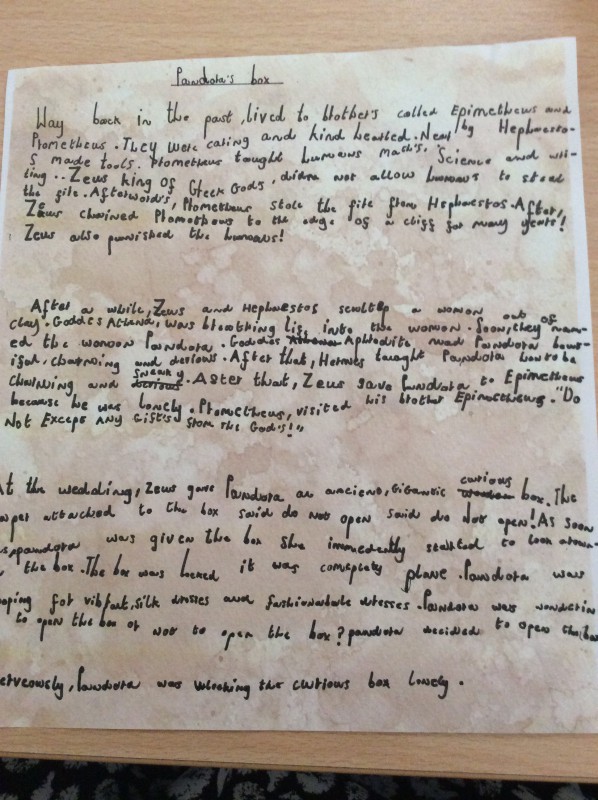 Pandora's box
Way back in the past, lived to brothers called Epimetheus and
Prometheus. They were caring and kind hearted. Near by Hephaesto-
s made tools. Prometheus taught humans math's, Science and wri-
ting.. Zeus king of Greek Gods, did not allow humans to steal
the fire. Afterword's, Prometheus stole the fire from Hephaestos. After,
Zeus chained Prometheus to the edge of a cliff for many years!
Zeus also punished the humans!
After a while, Zeus and Hephaestos sculp a women out of
clay. Goddes Athena, was breathing life into the women. Soon, they nam-
ed the women Pandora. Goddes Aphrodite mad Pandora beau-
iful, charming and devious. After that, Hermes taught Pandora how to be
charming and sneaky. After that, Zeus gave Pandora to Epimetheus
because he was lonely. Prometheus, visited his brother Epimetheus. "Do
Not Except ANY Gift's from the God's!"
At the wedding, Zeus gave Pandora an ancient, Gigantic curious box. The
attached to the box said do not open said do not open! As soon
pandora was given the box she immedently started to look aroun-
the box. The box was locked it was completely plane. Pandora was
oping for vibrant, silk dresses and fashionable dresses. Pandora was wonderin
to open the box or not to open the box? pandora decided to open the box
erveously, Pandora was the curious box lonely.